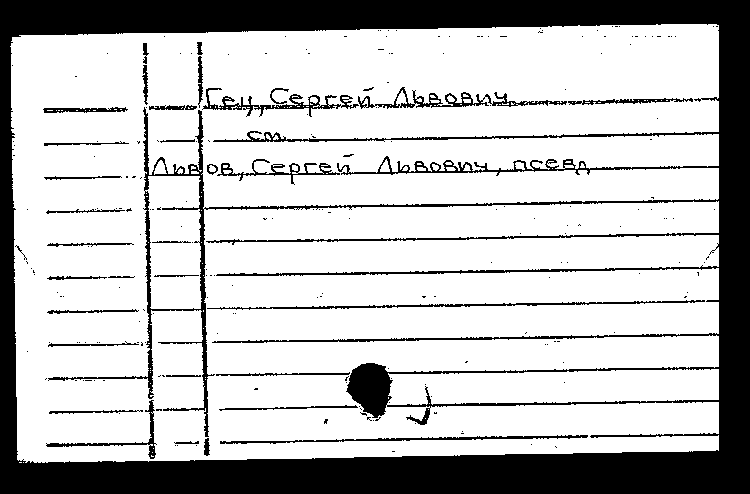 Гец, Сергей Львович
см.
Львов, Сергей Львович, псевд.